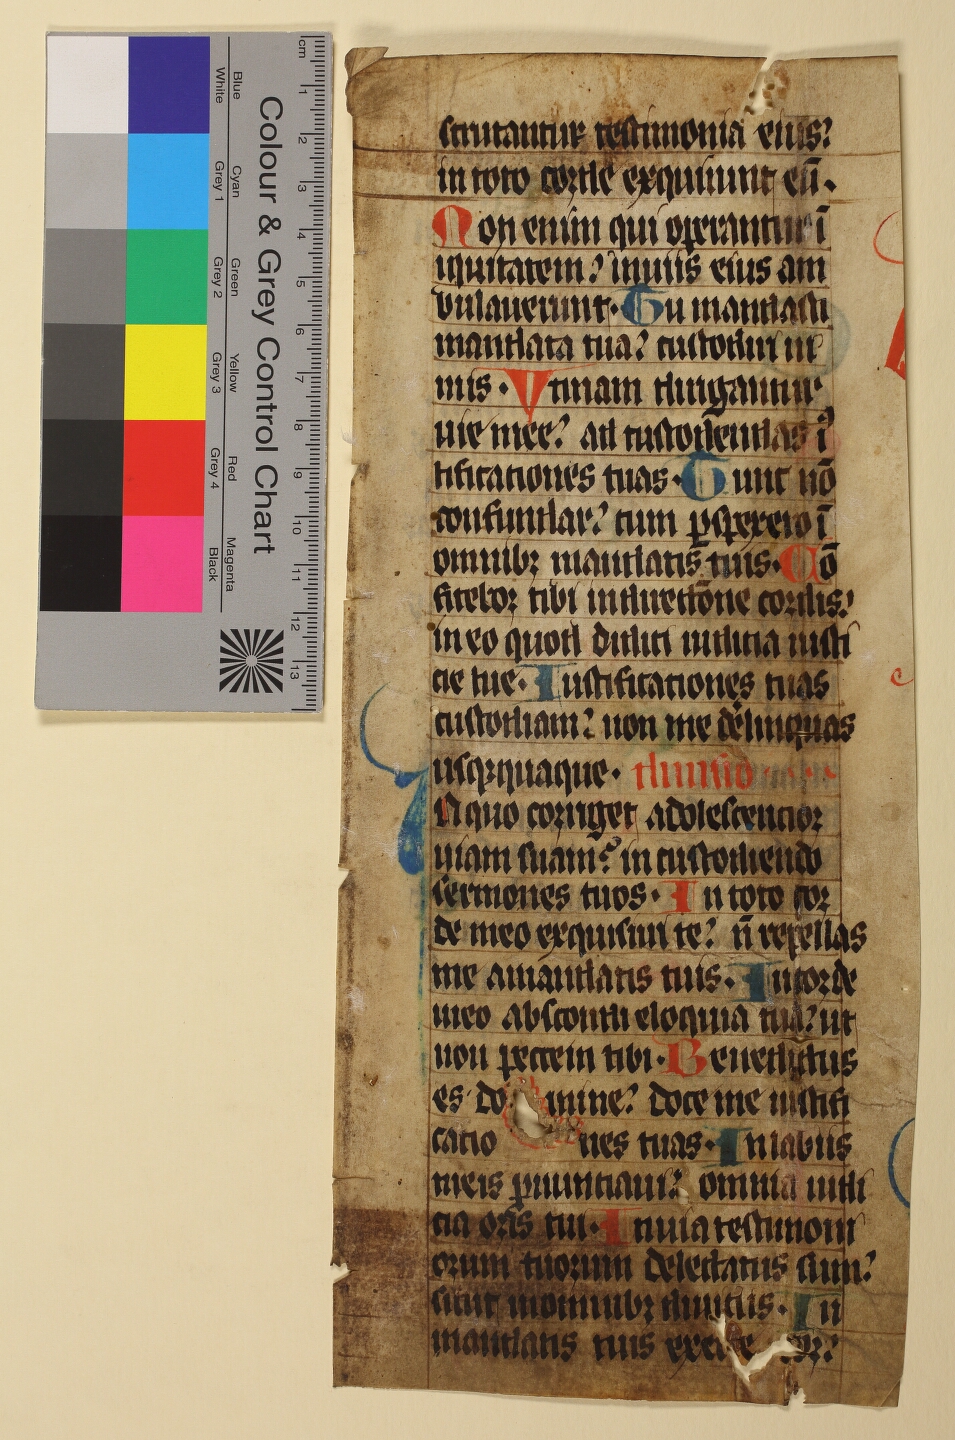 scrutantur testimonia eius?
in toto corde exquirunt eū.
Non enim qui operantur ī
iquitatem? in uiis eius am
bulauerunt. Tu mandasti
mandata tua? custodiri ni
mis. Vtinam dirigantur
uie mee? ad custodiendas iꝰ
tificationes tuas. Tunc nō
confundar? cum ꝑspexero ī
omnibꝫ mandatis tuis. Cō
fitebor tibi in directione cordis?
in eo quod didici iudicia iusti
cie tue. Iustificationes tuas
custodiam? non me delinquas
usqꝫquaque. diuisio
In quo corriget adolescentior
uiam suam? in custodiendo
sermones tuos. In toto cor
de meo exquisiui te? ñ repellas
me a mandatis tuis. In corde
meo abscondi eloquia tua? ut
non peccem tibi. Benedictus
es do mine? doce me iustifi
catio nes tuas. In labiis
meis ꝓnuntiaui? omnia iudi
cia oris tui. In uia testimoni
orum tuorum delectatus sum?
sicut in omnibꝫ diuitiis. In
mandatis tuis exerce bor?
Colour & Grey Control Chart
Blue
Cyan
Green
Yellow
Red
Magenta
White
Grey 1
Grey 2
Grey 3
Grey 4
Black
cm 1 2 3 4 5 6 7 8 9 10 11 12 13